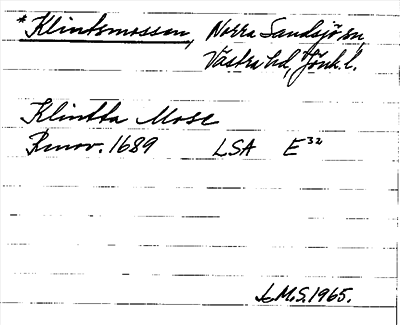 *Klintsmossen, Norra Sandsjö sn,
Västra hd, Jönk. l.
Klintta Mose
Renov. 1689 LSA E³²
J.M.S. 1965.